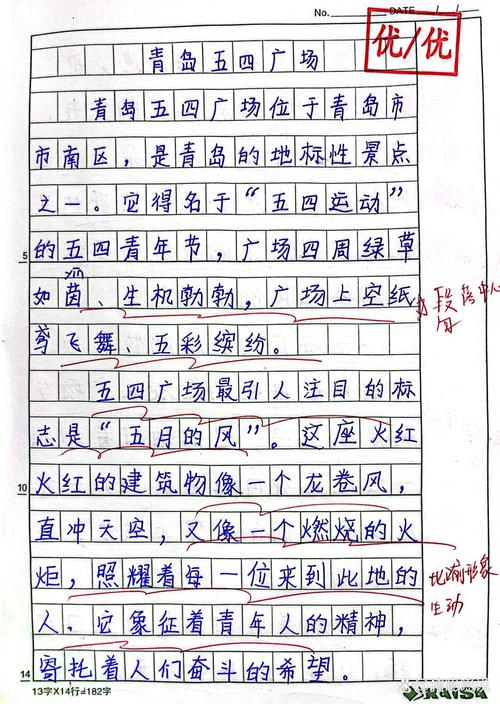 No. DATE / /
优/优
青岛五四广场
青岛五四广场位于青岛市
市南区，是青岛的地标性景点
之一。它得名于“五四运动”
5
的五四青年节，广场四周绿草
如茵、生机勃勃，广场上空纸
段落中心句
鸢飞舞、五彩缤纷。
五四广场最引人注目的标
志是“五月的风”。这座火红
10
火红的建筑物像一个龙卷风，
直冲天空，又像一个燃烧的火
炬，照耀着每一位来到此地的
比喻形象
生动
人，它象征着青年人的精神，
14
寄托着人们奋斗的希望。
13字X14行=182字